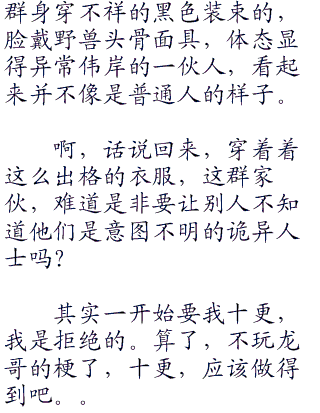 群身穿不祥的黑色装束的，
脸戴野兽头骨面具，体态显
得异常伟岸的一伙人，看起
来并不像是普通人的样子。
啊，话说回来，穿着着
这么出格的衣服，这群家
伙，难道是非要让别人不知
道他们是意图不明的诡异人
士吗？
其实一开始要我十更，
我是拒绝的。算了，不玩龙
哥的梗了，十更，应该做得
到吧。。